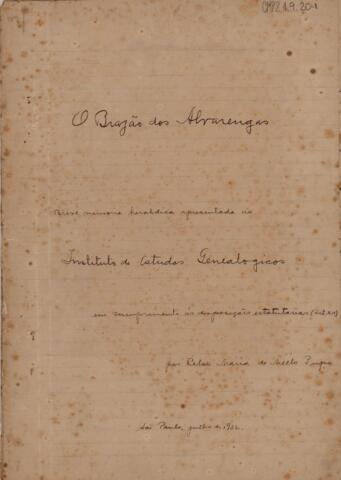 O Brazão dos Alvarengas
Breve memoria heraldica apresentada ao
Instituto de Estudos Genealogicos
em cumprimento ás disposições estatutarias
por Maria de Mello
São Paulo, julho de